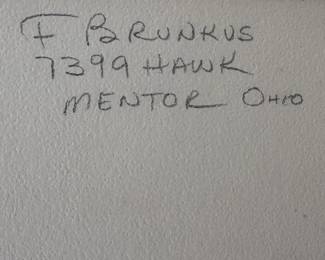 F BRUNKUS
7399 HAWK
MENTOR OHIO